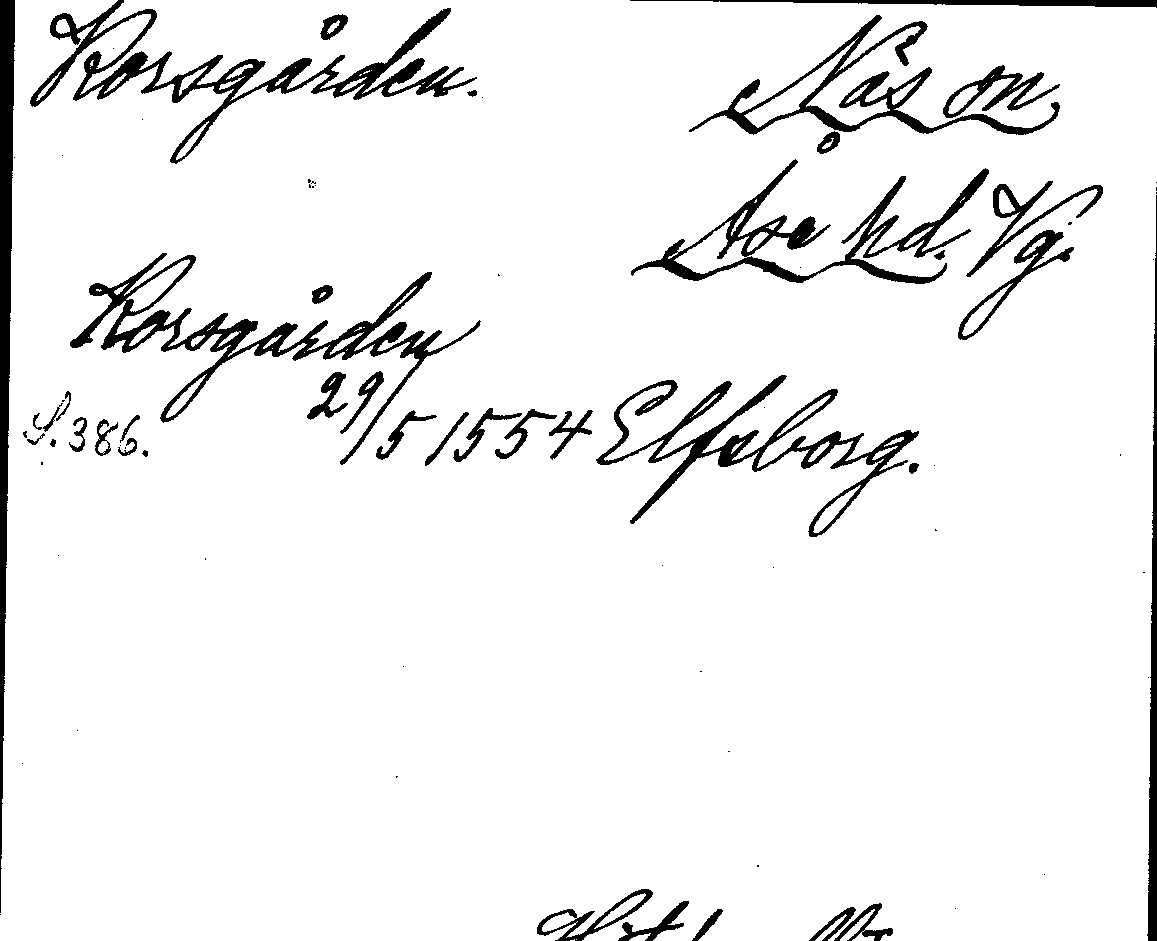 Korsgården.
Näs sn.
Åse hd. Vg.
Korsgården
S. 386. 29/5 1554 Elfsborg.